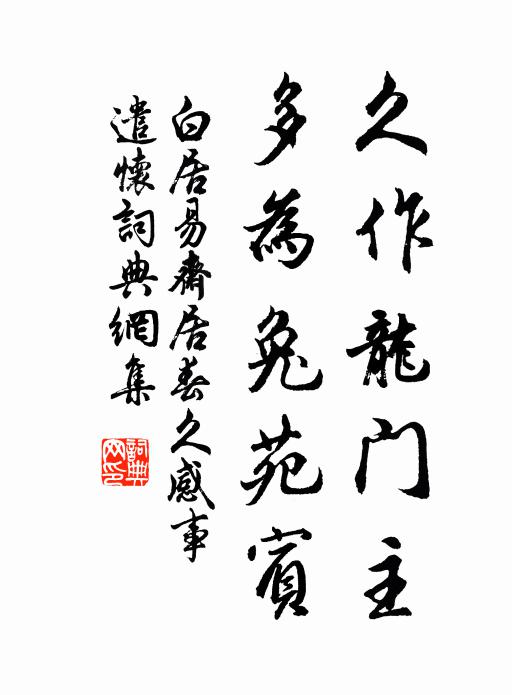 久作龍門主
多為兔苑賓
白居易齋居春久感事
遣懷詞典網集
詞典
网印